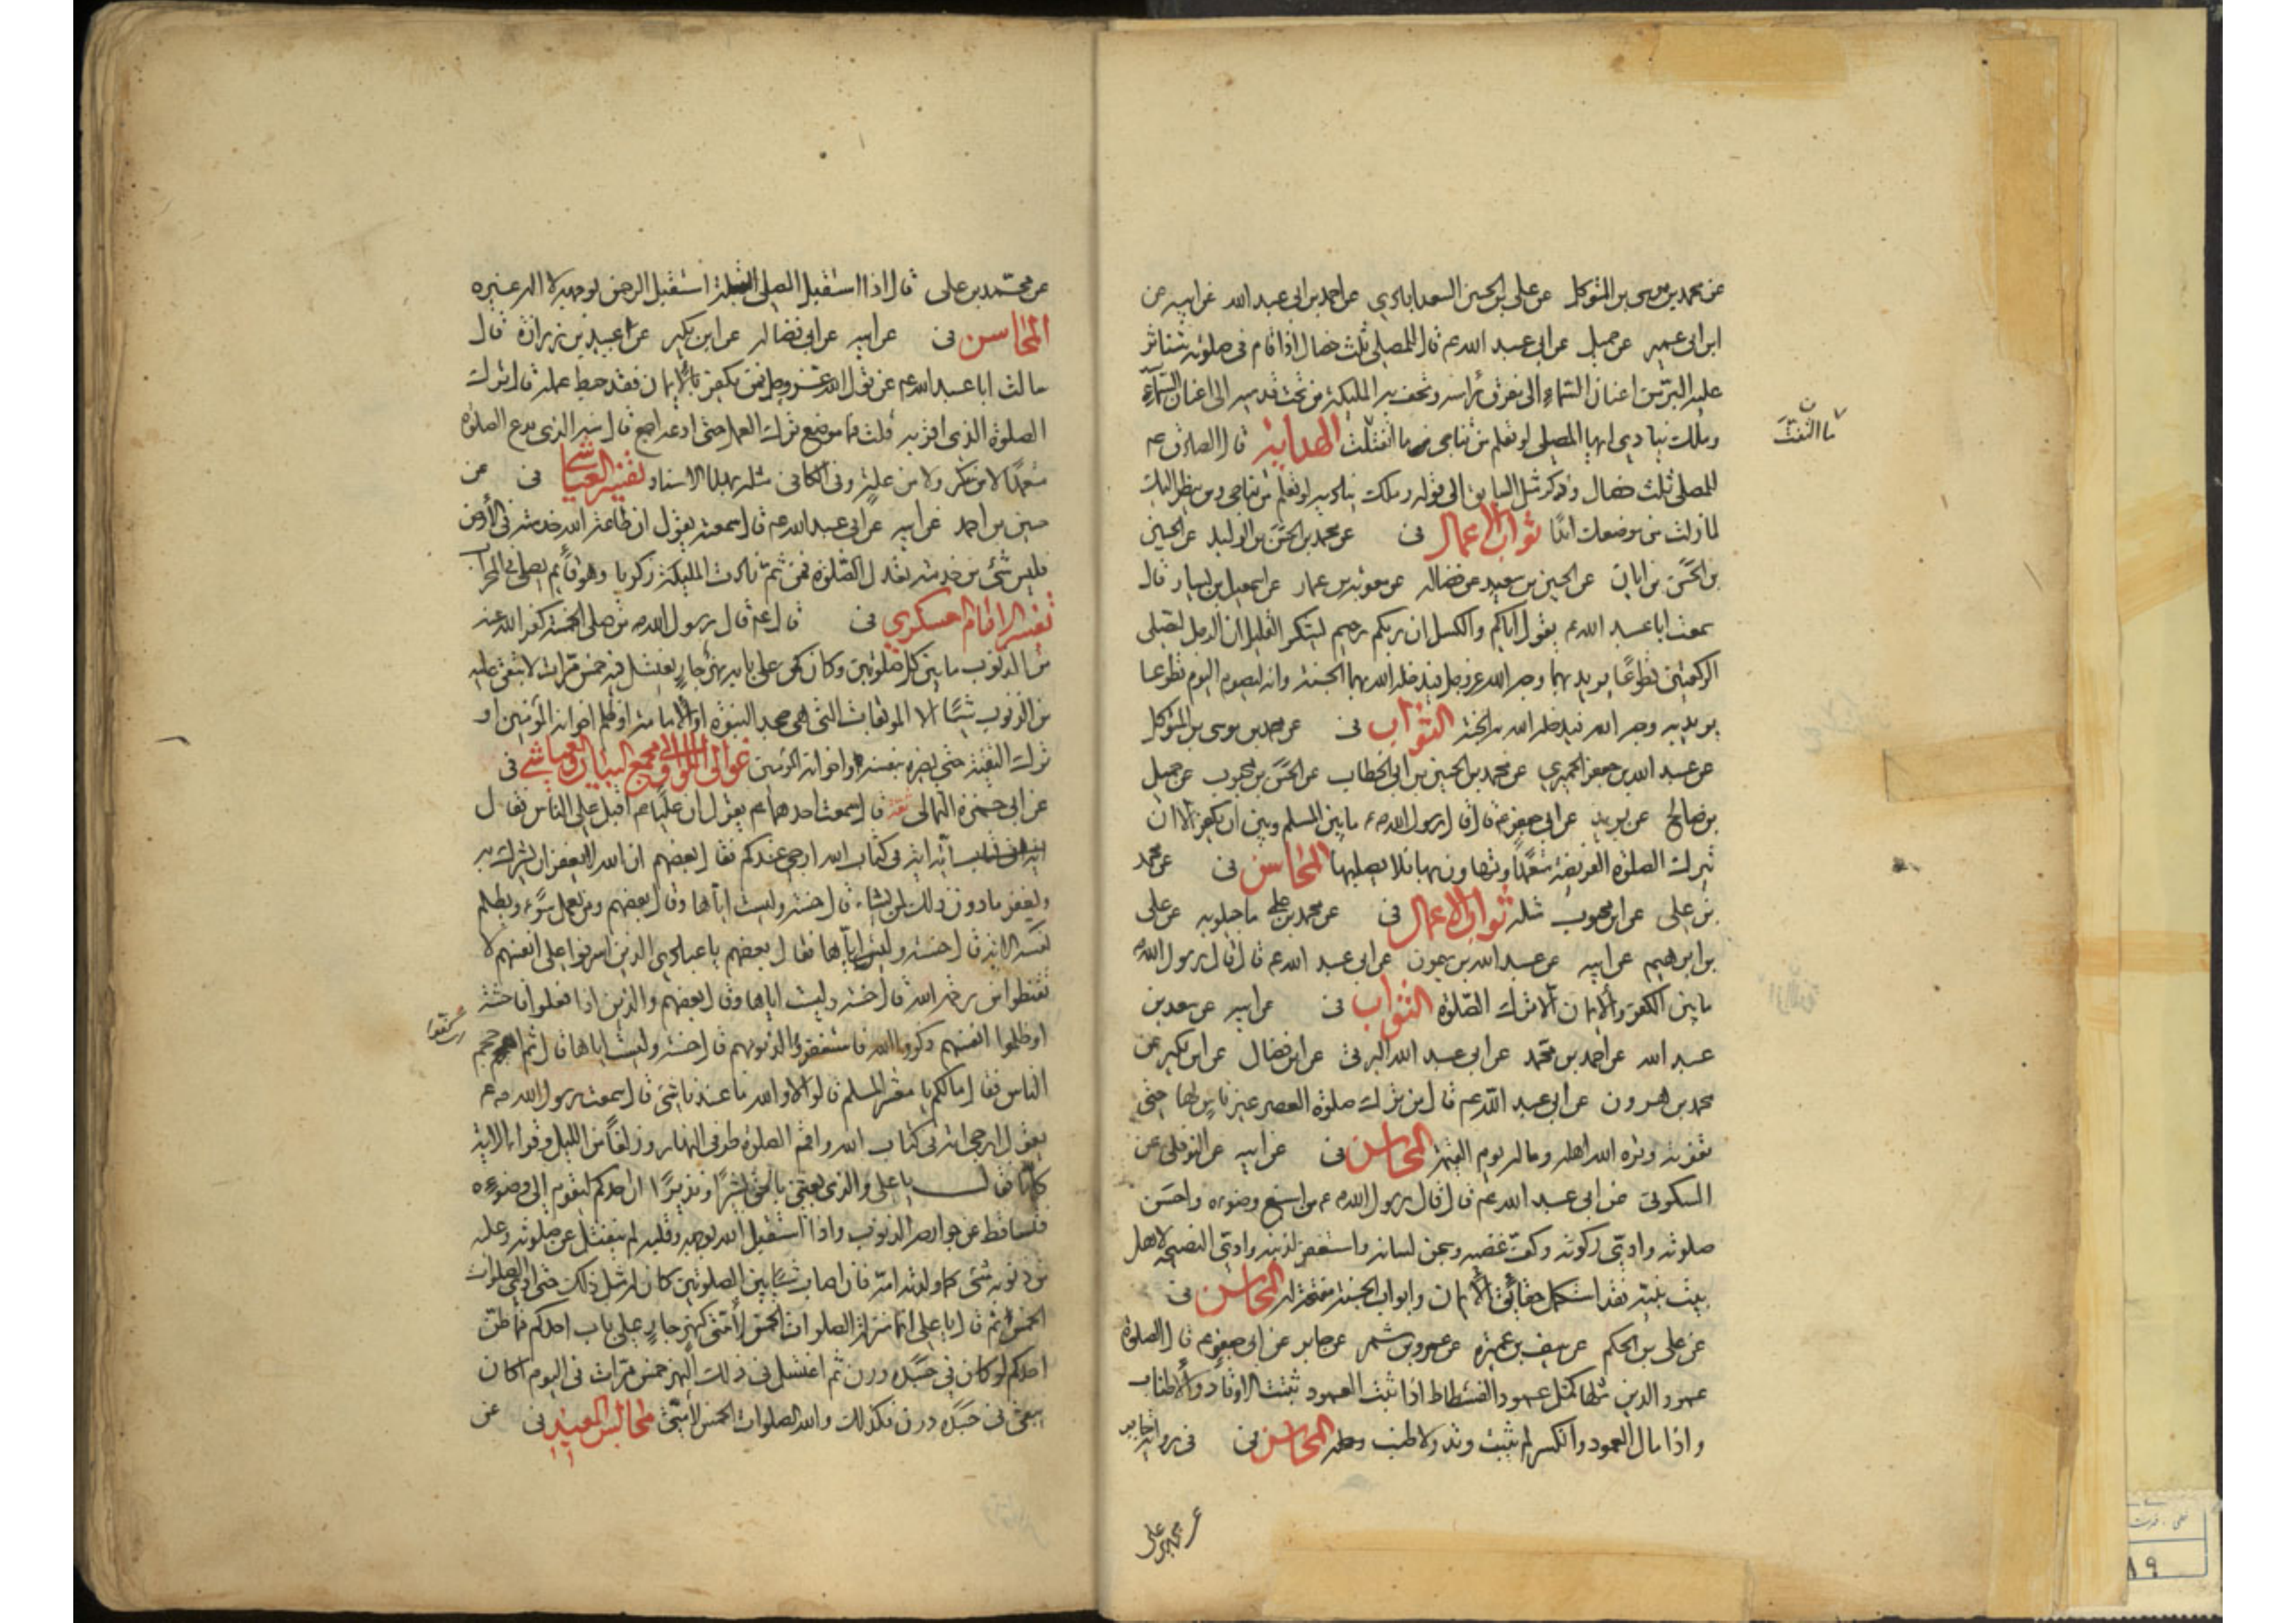 عن محمد بن موسى بن المتوكل عن على بن الحسين السعدابادي عن احمد بن ابى عبد الله عن ابيه عن
ابن ابى عمير عن جميل عن ابى عبد الله ع قال للمصلى ثلث خصال اذا قام فى صلوته يتناثر
عليه البر من اعنان السماء الى مفرق راسه وتحف به المليكة من تحت قدميه الى اعنان السماء
وملك ينادى ايها المصلى لو تعلم من تناجى ما انفتلت الهداية قال الصادق ع
ما التفت
للمصلى ثلث خصال وذكر مثل السابق الى قوله وملك يناديه لو تعلم من تناجى ومن ينظر اليك
لما زلت من موضعك ابدا ثواب الاعمال فى عن محمد بن الحسن بن الوليد عن الحسين
بن الحسن بن ابان عن الحسين بن سعيد عن فضاله عن معوية بن عمار عن اسمعيل بن يسار قال
سمعت ابا عبد الله ع يقول اياكم والكسل ان ربكم رحيم يشكر القليل ان الرجل ليصلى
الركعتين تطوعا يريد بهما وجه الله عز وجل فيدخله الله بهما الجنة وانه ليصوم اليوم تطوعا
يريد به وجه الله فيدخله الله به الجنة الثواب فى عن محمد بن موسى بن المتوكل
عن عبد الله بن جعفر الحميري عن محمد بن الحسين بن ابى الخطاب عن الحسن بن محبوب عن جميل
بن صالح عن بريد عن ابى جعفر ع قال قال رسول الله ص ما بين المسلم وبين ان يكفر الا ان
يترك الصلوة الفريضة متعمدا او يتهاون بها فلا يصليها المحاسن فى عن محمد
بن على عن ابن محبوب مثله ثواب الاعمال فى عن محمد بن على ماجيلويه عن على
بن ابرهيم عن ابيه عن عبد الله بن ميمون عن ابى عبد الله ع قال قال رسول الله ص
ما بين الكفر والايمان الا ترك الصلوة الثواب فى عن ابيه عن سعد بن
عبد الله عن احمد بن محمد عن ابى عبد الله البرقى عن ابن فضال عن ابن بكير عن
محمد بن هرون عن ابى عبد الله ع قال من ترك صلوة العصر غير ناس لها حتى
تفوته وتره الله اهله وماله يوم القيمة المحاسن فى عن ابيه عن النوفلى عن
السكونى عن ابى عبد الله ع قال قال رسول الله ص من اسبغ وضوءه واحسن
صلوته وادى زكوته وكف غضبه وسجن لسانه واستغفر لذنبه وادى النصيحة لاهل
بيت نبيه فقد استكمل حقائق الايمان وابواب الجنة مفتحة له المحاسن فى
عن على بن الحكم عن سيف بن عميرة عن عمرو بن شمر عن جابر عن ابى جعفر ع قال الصلوة
عمود الدين مثلها كمثل عمود الفسطاط اذا ثبت العمود ثبتت الاوتاد والاطناب
واذا مال العمود وانكسر لم يثبت وتد ولا طنب المحاسن فى فى رواية جابر
عن محمد بن على
عن محمد بن على قال اذا استقبل المصلى القبلة استقبل الرحمن بوجهه لا اله غيره
المحاسن فى عن ابيه عن ابى فضاله عن ابن بكير عن عبيد بن زرارة قال
سالت ابا عبد الله ع عن قول الله عز وجل فمن يكفر بالايمان فقد حبط عمله قال ترك
الصلوة الذى اقر به قلت فما موضع ترك العمل حتى ادعه اجمع قال منه الذى يدع الصلوة
متعمدا لا من سكر ولا من علة وفى الكافى مثله بهذا الاسناد تفسير العياشى فى عن
حسين بن احمد عن ابيه عن ابى عبد الله ع قال سمعته يقول ان طاعة الله خدمته فى الارض
فليس شئ من خدمته يعدل الصلوة فمن ثم نادت المليكة زكريا وهو قائم يصلى فى المحراب
تفسير الامام العسكري فى قال ع قال رسول الله ص من صلى الخمس كفر الله عنه
من الذنوب ما بين كل صلوتين وكان كمن على بابه نهر جار يغتسل فيه خمس مرات لا يبقى عليه
من الذنوب شيئا الا الموبقات التى هى جحد النبوة او الامامة او ظلم اخوانه المؤمنين او
ترك التقية حتى يضر بنفسه او اخوانه المؤمنين غوالى اللالى ومجمع البيان والعياشى فى
عن ابى حمزة الثمالى قال سمعت احدهما ع يقول ان عليا ع اقبل على الناس فقال
اية آية فى كتاب الله ارجى عندكم فقال بعضهم ان الله لا يغفر ان يشرك به
ويغفر ما دون ذلك لمن يشاء قال حسنة وليست اياها وقال بعضهم ومن يعمل سوء او يظلم
نفسه الاية قال حسنة وليست اياها فقال بعضهم يا عبادى الذين اسرفوا على انفسهم لا
تقنطوا من رحمة الله قال حسنة وليست اياها وقال بعضهم والذين اذا فعلوا فاحشة
او ظلموا انفسهم ذكروا الله فاستغفروا لذنوبهم قال حسنة وليست اياها قال ثم احجم
الناس فقال ما لكم يا معشر المسلمين قالوا لا والله ما عندنا شئ قال سمعت رسول الله ص
يقول ارجى اية فى كتاب الله واقم الصلوة طرفى النهار وزلفا من الليل وقراء الاية
كلها قال يا على والذى بعثنى بالحق بشيرا ونذيرا ان احدكم ليقوم الى وضوءه
فتساقط عن جوارحه الذنوب واذا استقبل الله بوجهه وقلبه لم ينفتل عن صلوته وعليه
من ذنوبه شئ كما ولدته امه فان اصاب شيئا بين الصلوتين كان له مثل ذلك حتى الصلوات
الخمس ثم قال يا على انما منزلة الصلوات الخمس لامتى كنهر جار على باب احدكم فما ظن
احدكم لو كان فى جسده درن ثم اغتسل فى ذلك النهر خمس مرات فى اليوم اكان
يبقى فى جسده درن فكذلك والله الصلوات الخمس لامتى مجالس المفيد فى عن